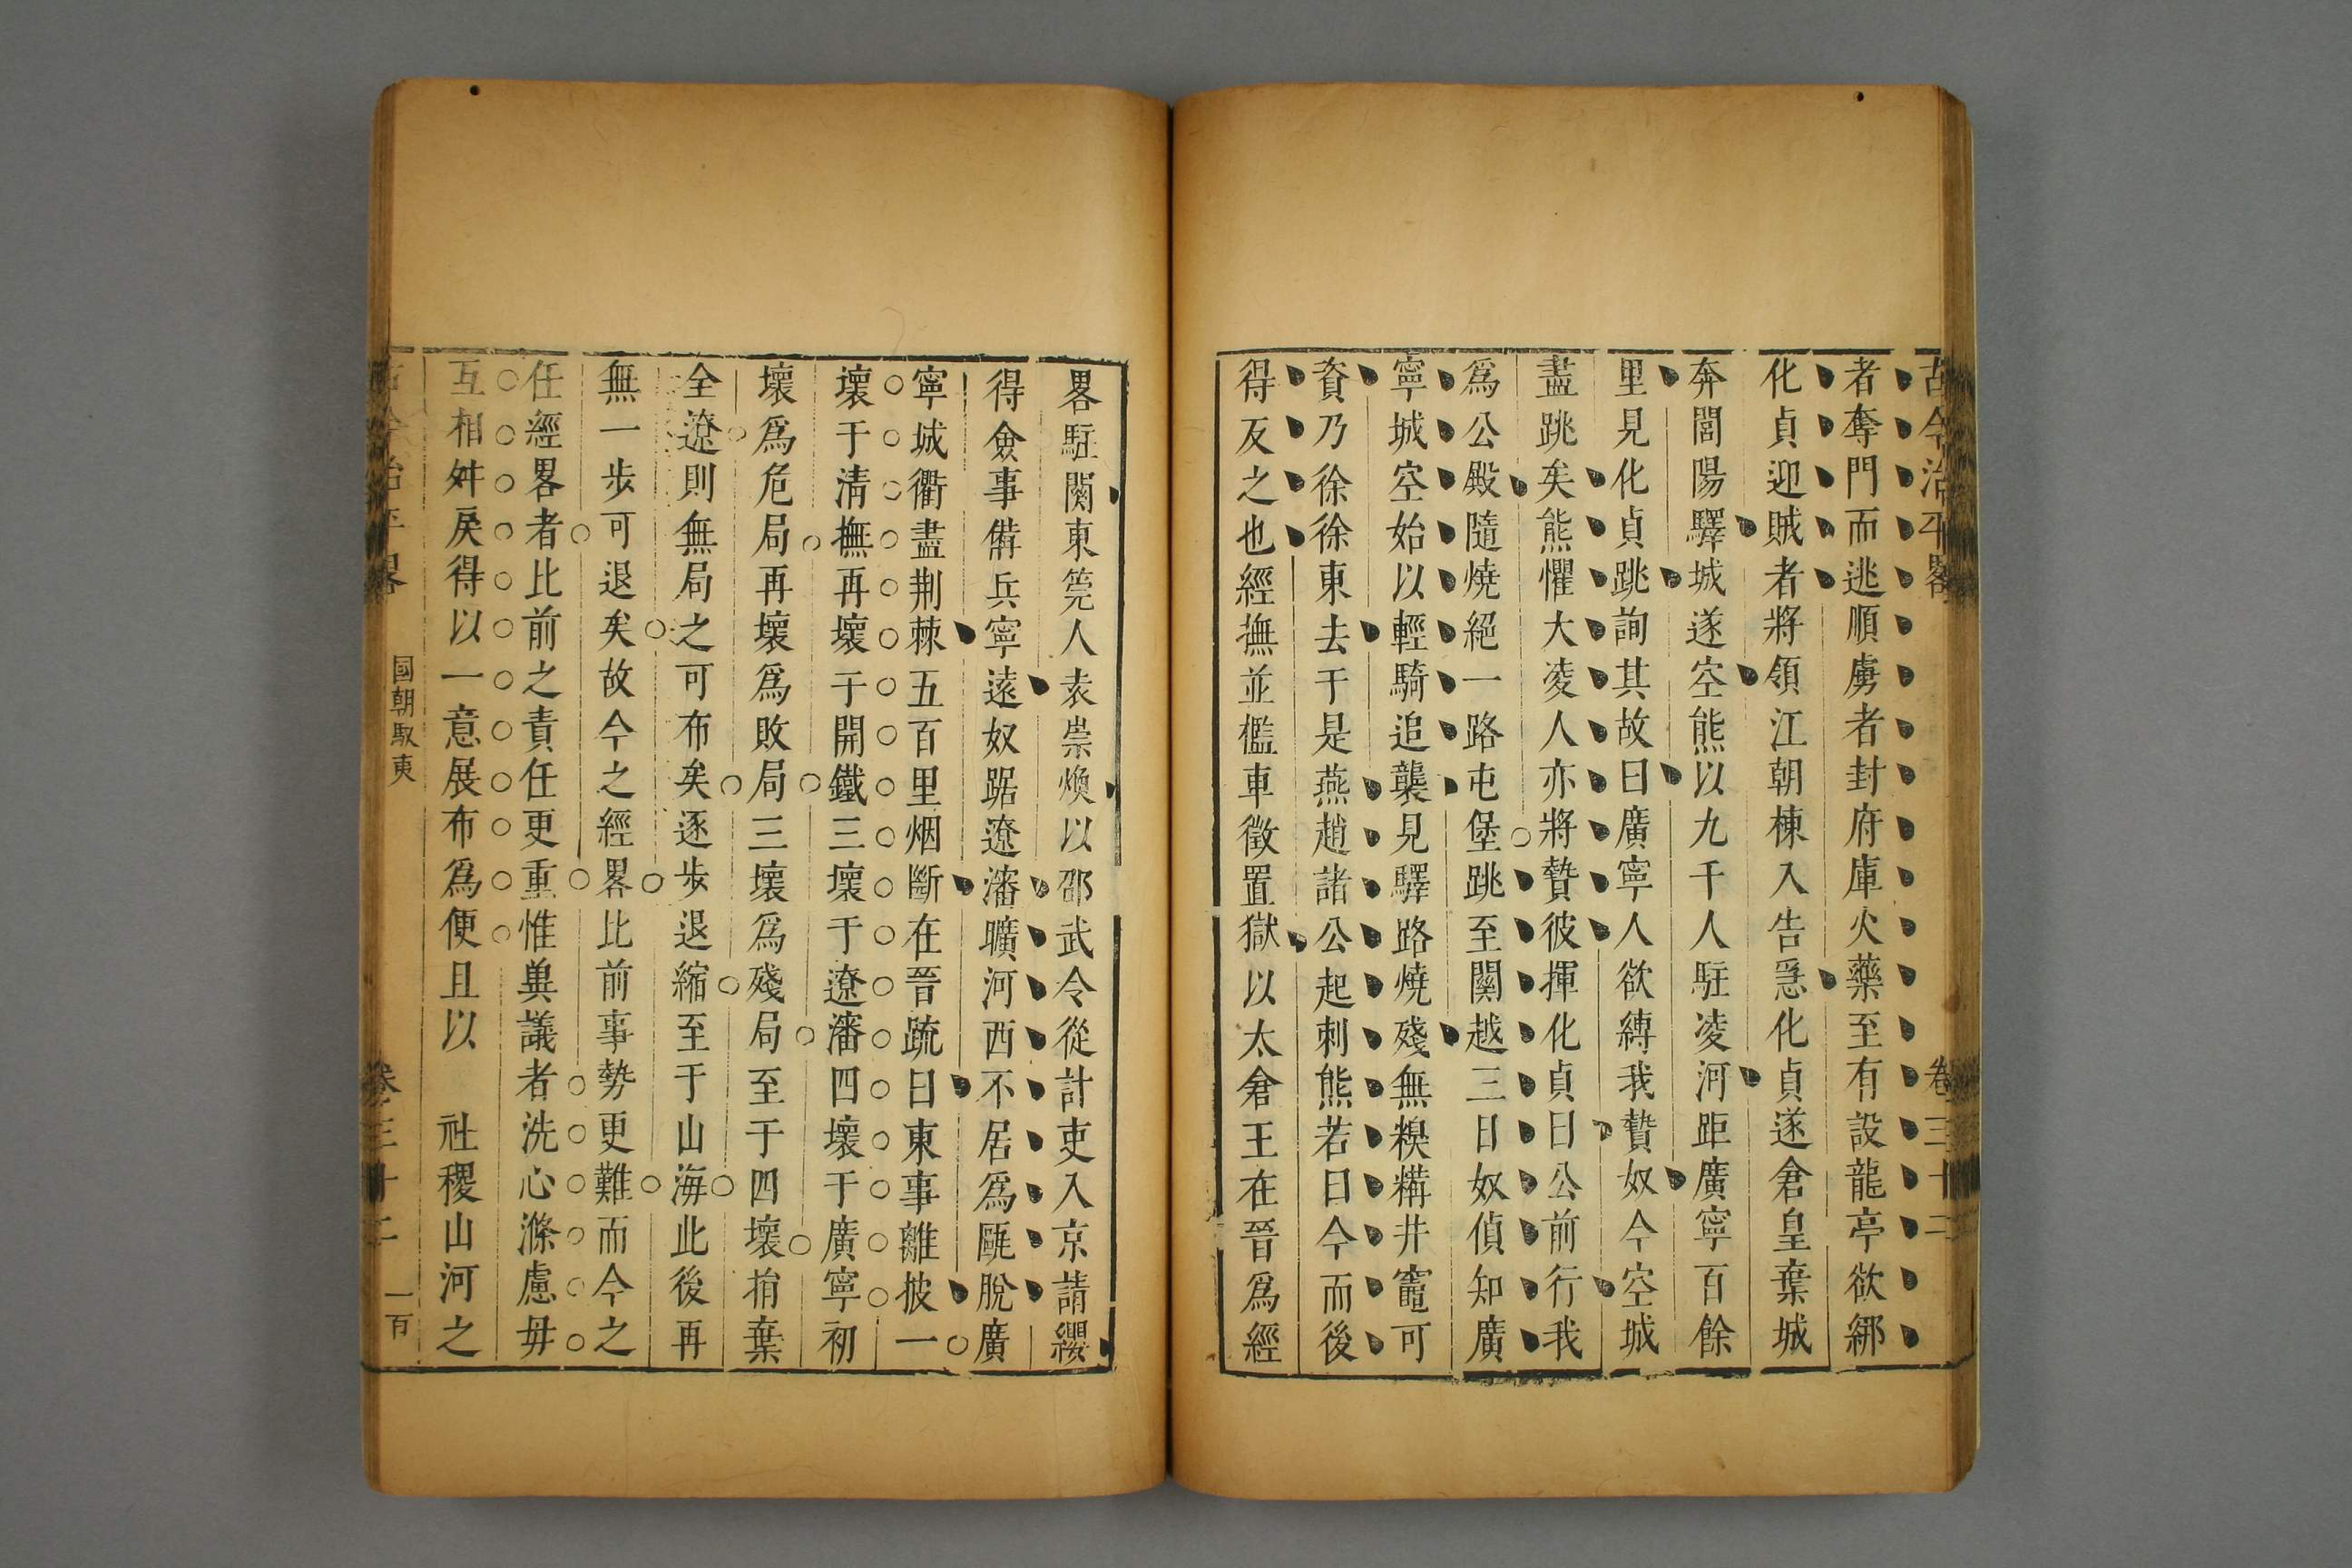 古今治平畧　卷三十二
者奪門而逃順虜者封府庫火藥至有設龍亭欲綁
化貞迎賊者將領江朝棟入告急化貞遂倉皇棄城
奔閭陽驛城遂空熊以九千人駐凌河距廣寧百餘
里見化貞跳詢其故曰廣寧人欲縛我贄奴今空城
盡跳矣熊懼大凌人亦將贄彼揮化貞曰公前行我
爲公殿隨燒絕一路屯堡跳至關越三日奴偵知廣
寧城空始以輕騎追襲見驛路燒殘無糗糒井竈可
資乃徐徐東去于是燕趙諸公起刺熊若曰今而後
得反之也經撫並檻車徵置獄以太倉王在晉爲經
畧駐關東筦人袁崇煥以邵武令從計吏入京請纓
得僉事備兵寧遠奴踞遼瀋曠河西不居爲甌脫廣
寧城衢盡荆棘五百里烟斷在晉疏曰東事離披一
壞于清撫再壞于開鐵三壞于遼瀋四壞于廣寧初
壞爲危局再壞爲敗局三壞爲殘局至于四壞捐棄
全遼則無局之可布矣逐步退縮至于山海此後再
無一步可退矣故今之經畧比前事勢更難而今之
任經畧者比前之責任更重惟兾議者洗心滌慮毋
互相舛戾得以一意展布爲便且以　社稷山河之
古今治平畧　國朝馭夷　卷三十二　一百